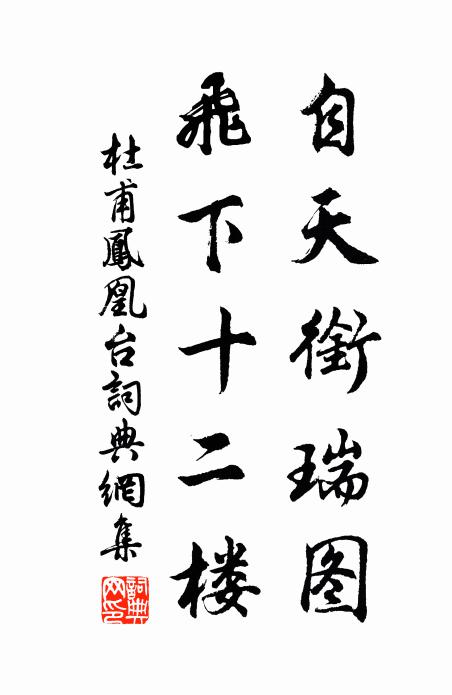 自天銜瑞图
飛下十二楼
杜甫鳳凰台詞典網集
詞典